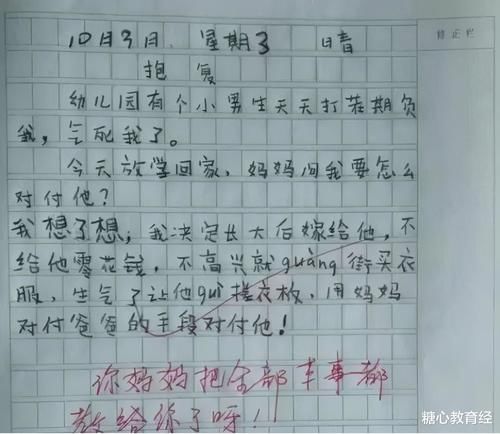 10月3日 星期3 日青
抱复
幼儿园有个小男生天天打茬期负
我,气死我了。
今天放学回家,妈妈问我要怎么
对付他?
我想了想,我决定长大后嫁给他,不
给他零花钱,不高兴就guàng街买衣
服,生气了让他guì搓衣板,用妈妈
对付爸爸的手段对付他!
你妈妈把全部本事都
教给你了呀!
修正栏
糖心教育经